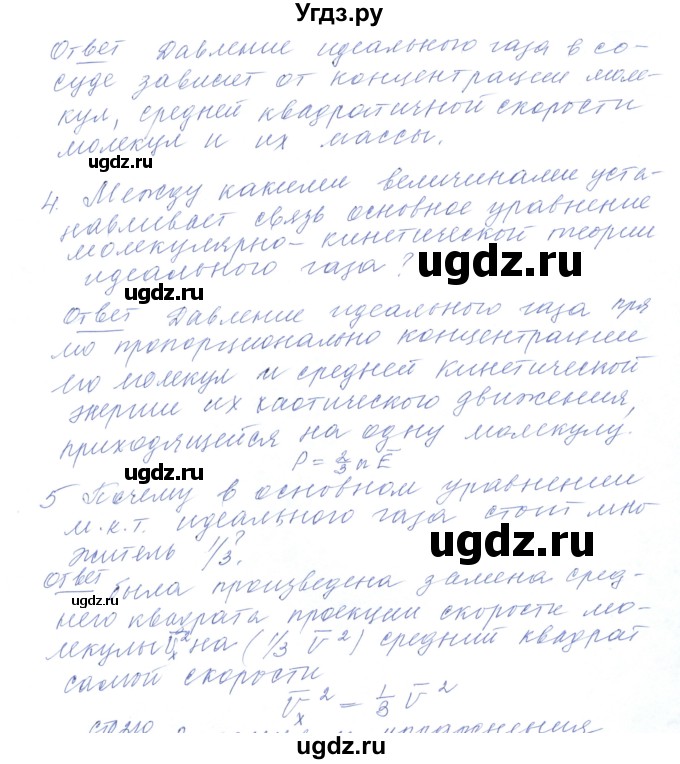 Угдз.ру
Ответ Давление идеального газа в со-
суде зависит от концентрации моле-
кул, средней квадратичной скорости
молекул и их массы.
угдз.ру
4. Между какими величинами уста-
навливает связь основное уравнение
молекулярно-кинетической теории
угдз.ру
идеального газа?
угдз.ру
Ответ Давление идеального газа пря
мо пропорционально концентрации
его молекул и средней кинетической
энергии их хаотического движения,
приходящейся на одну молекулу.
угдз.ру
P = 2/3 n E̅
5 Почему в основном уравнении
м.к.т. идеального газа стоит мно
угдз.ру
житель 1/3?
Ответ Была произведена замена сред-
угдз.ру
него квадрата проекции скорости мо-
лекулы v̅ₓ² на (1/3 v̅²) средний квадрат
самой скорости
v̅ₓ² = 1/3 v̅²
стр 210
упражнения
угдз.ру